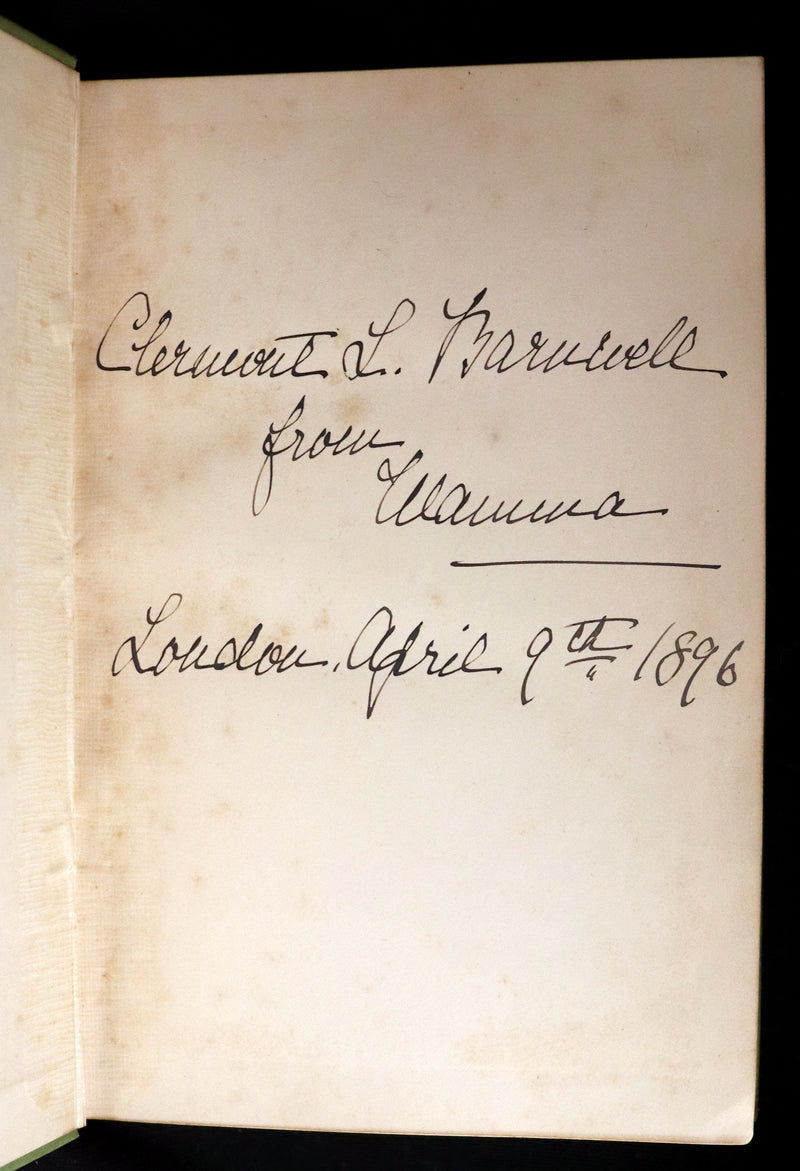 Clermont L. Barnwell
from
Mamma
London, April 9th 1896